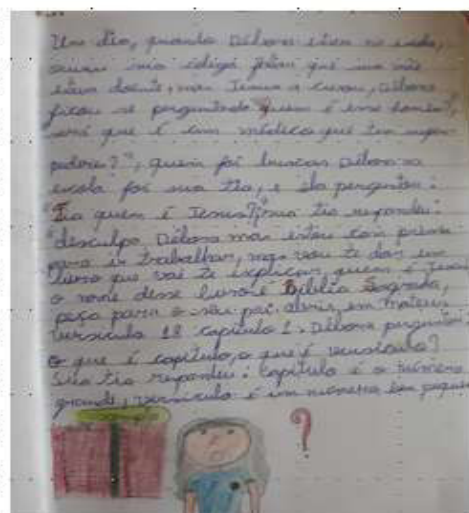 Um dia, quando Débora estava na escola,
ouviu sua colega falar que sua mãe
estava doente, mas Jesus a curou, Débora
ficou se perguntado quem é esse homem?",
será que é um médico que tem super
poderes?", quem foi buscar Débora na
escola foi sua tia, e ela perguntou:
"Tia quem é Jesus?", sua tia respondeu:
"desculpa, Débora mas estou com pressa
para ir trabalhar, mas vou te dar um
livro que vai te explicar quem é Jesus
o nome desse livro é Bíblia Sagrada,
peça para o seu pai abrir em Mateus
versículo 18 capítulo 1. Débora perguntou:
o que é capítulo, o que é versículo?
Sua tia respondeu: capítulo é o número
grande, versículo é um número bem pequeno
?